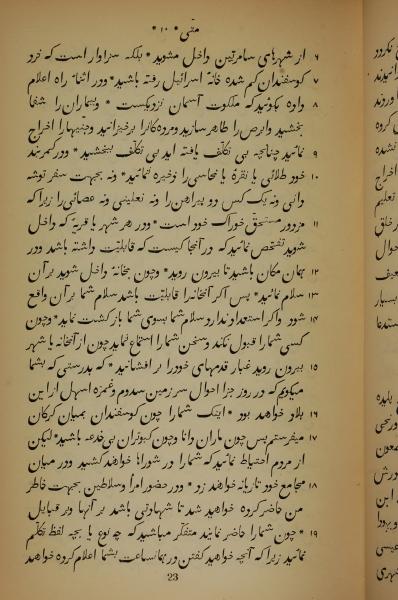 متی * ۱۰ *
۶ از شهرهای سامریین داخل مشوید * بلکه سزاوار است که نزد
۷ کوسفندان کم شده خانهٔ اسرائیل رفته باشید * ودر اثنای راه اعلام
۸ داده بکوئید که ملکوت آسمان نزدیکست * وبیماران را شفا
بخشید وابرص را طاهر سازید ومرده‌کانرا برخیزانید ودیوها را اخراج
۹ نمائید چنانچه بی تکلّف یافته اید بی تکلّف ببخشید * ودر کمربند
۱۰ خود طلائی یا نقرهٔ یا نحاسی را ذخیره نمائید * ونه بجهت سفر توشه
دانی ونه یک کس دو پیراهن را ونه نعلینی ونه عصائی را زیرا که
۱۱ مزدور مستحقّ خوراک خود است * ودر هر شهر یا قریهٔ که داخل
شوید تفحّص نمائید که در آنجا کیست که قابلیّت داشته باشد ودر
۱۲ همان مکان باشید تا بیرون روید * وچون بخانهٔ داخل شوید بر آن
۱۳ سلام نمائید * پس اکر آنخانه را قابلیّت باشد سلام شما بر آن واقع
۱۴ شود واکر استعداد ندارد سلام شما بسوی شما باز کشت نماید * وچون
کسی شما را قبول نکند وسخن شما را استماع ننماید چون از آنخانه یا شهر
۱۵ بیرون روید غبار قدمهای خود را بر افشانید * که بدرستی که بشما
میکویم که در روز جزا احوال سرزمین سدوم وغمره اسهل از این
۱۶ بلاد خواهد بود * اینک شما را چون کوسفندان بمیان کرکان
۱۷ میفرستم پس چون ماران دانا وچون کبوتران بی خدعه باشید * لیکن
از مردم احتیاط نمائید که شما را در شوراها خواهند کشید ودر میان
۱۸ مجامع خود تازیانه خواهند زد * ودر حضور امرا وسلاطین بجهت خاطر
من حاضر کرده خواهید شد تا شهادتی باشد بر آنها وبر قبایل
۱۹ * چون شما را حاضر نمایند متفکّر مباشید که چه نوع یا بچه لفظ تکلّم
نمائید زیرا که آنچه خواهید کفتن در همانساعت بشما اعلام کرده خواهد
23